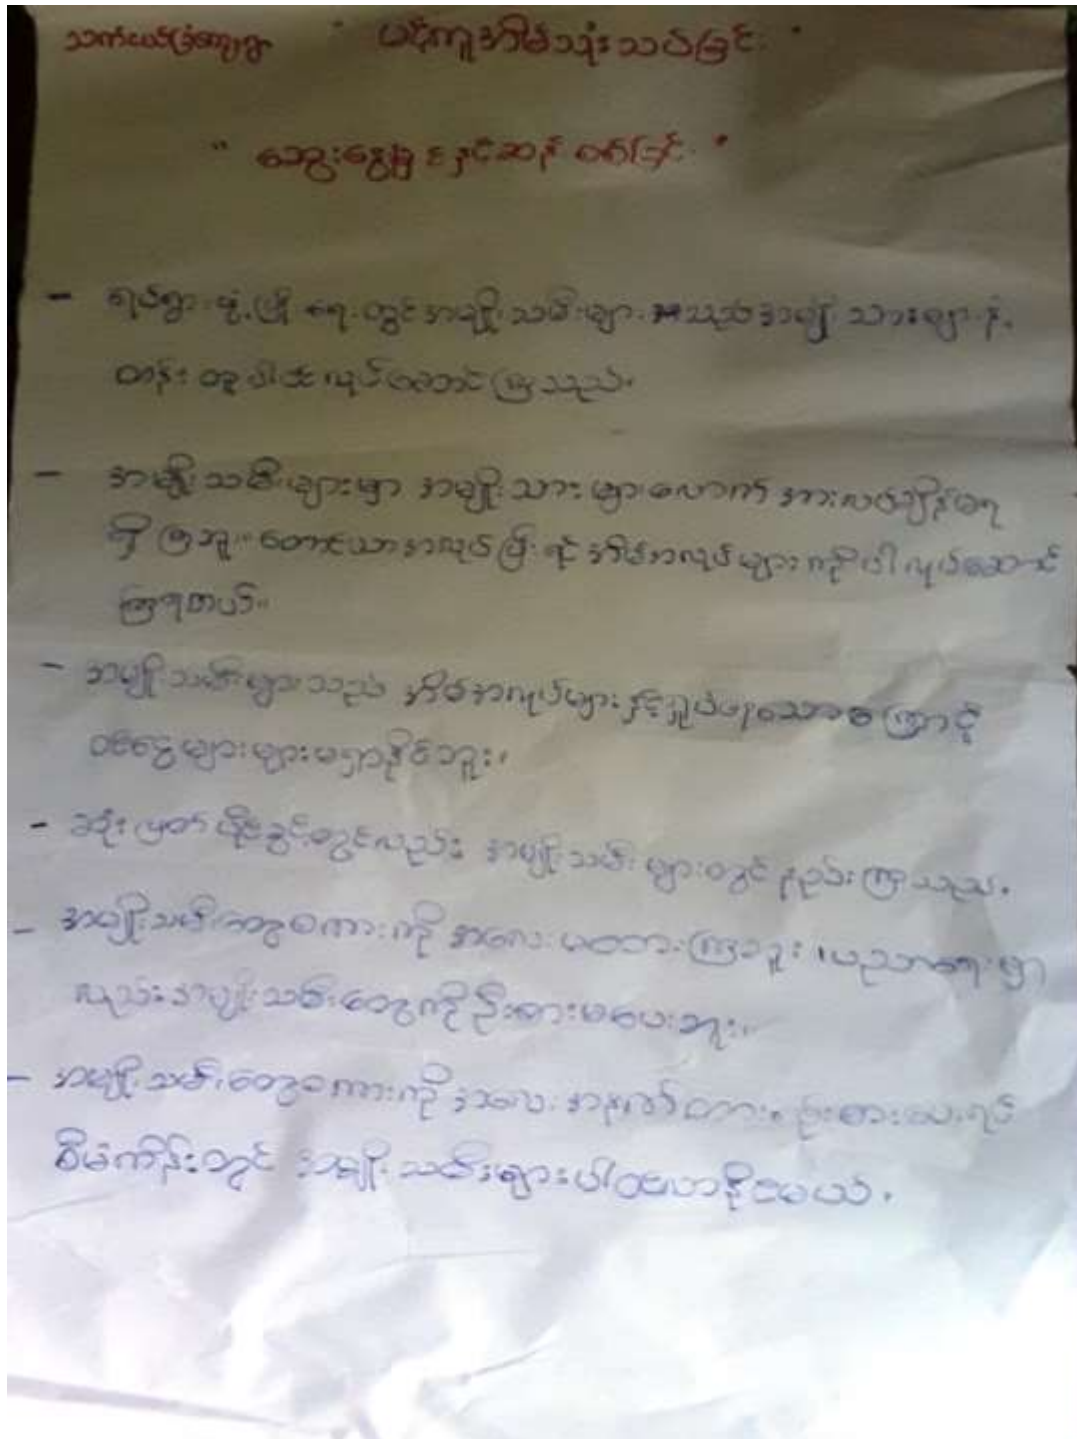 သက်ငယ်ခြံကျေးရွာ " ပင့်ကူအိမ်သုံးသပ်ခြင်း "
" ဆွေးနွေး စစ်ခြင်း "
- ရပ်ရွာ ဖွံ့ဖြိုးရေးတွင် အမျိုးသမီးများ သည် အမျိုးသားများနှင့်
တန်းတူ ပါဝင် လုပ်ဆောင်ကြသည်။
- အမျိုးသမီးများမှာ အမျိုးသားများလောက် အားလပ်ချိန်မရ
ရှိကြဘူး။ တောင်ယာအလုပ်ပြီးရင် အိမ်အလုပ်များကိုပါ လုပ်ဆောင်
ကြရတယ်။
- အမျိုးသမီးများသည် အိမ်အလုပ်များနှင့်ရှုပ်နေသောကြောင့်
ဝင်ငွေများများမရှာနိုင်ဘူး။
- ဆုံးဖြတ်ပိုင်ခွင့်တွင်လည်း အမျိုးသမီးများတွင် နည်းကြသည်။
- အမျိုးသမီးတွေစကားကို အလေးမထားကြဘူး။ ပညာရေးမှာ
လည်းအမျိုးသမီးတွေကိုဦးစားမပေးဘူး။
- အမျိုးသမီးတွေစကားကို အလေးအနက်ထား ဦးစားပေးရင်
စီမံကိန်းတွင် အမျိုးသမီးများပါဝင်လာနိုင်မယ်။